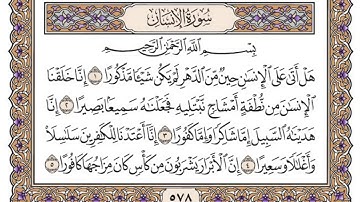 سُورَةُ الْإِنسَانِ
بِسْمِ اللَّهِ الرَّحْمَٰنِ الرَّحِيمِ
هَلْ أَتَىٰ عَلَى الْإِنسَانِ حِينٌ مِّنَ الدَّهْرِ لَمْ يَكُن شَيْئًا مَّذْكُورًا ١ إِنَّا خَلَقْنَا
الْإِنسَانَ مِن نُّطْفَةٍ أَمْشَاجٍ نَّبْتَلِيهِ فَجَعَلْنَاهُ سَمِيعًا بَصِيرًا ٢ إِنَّا
هَدَيْنَاهُ السَّبِيلَ إِمَّا شَاكِرًا وَإِمَّا كَفُورًا ٣ إِنَّا أَعْتَدْنَا لِلْكَافِرِينَ سَلَاسِلَا
وَأَغْلَالًا وَسَعِيرًا ٤ إِنَّ الْأَبْرَارَ يَشْرَبُونَ مِن كَأْسٍ كَانَ مِزَاجُهَا كَافُورًا ٥
٥٧٨